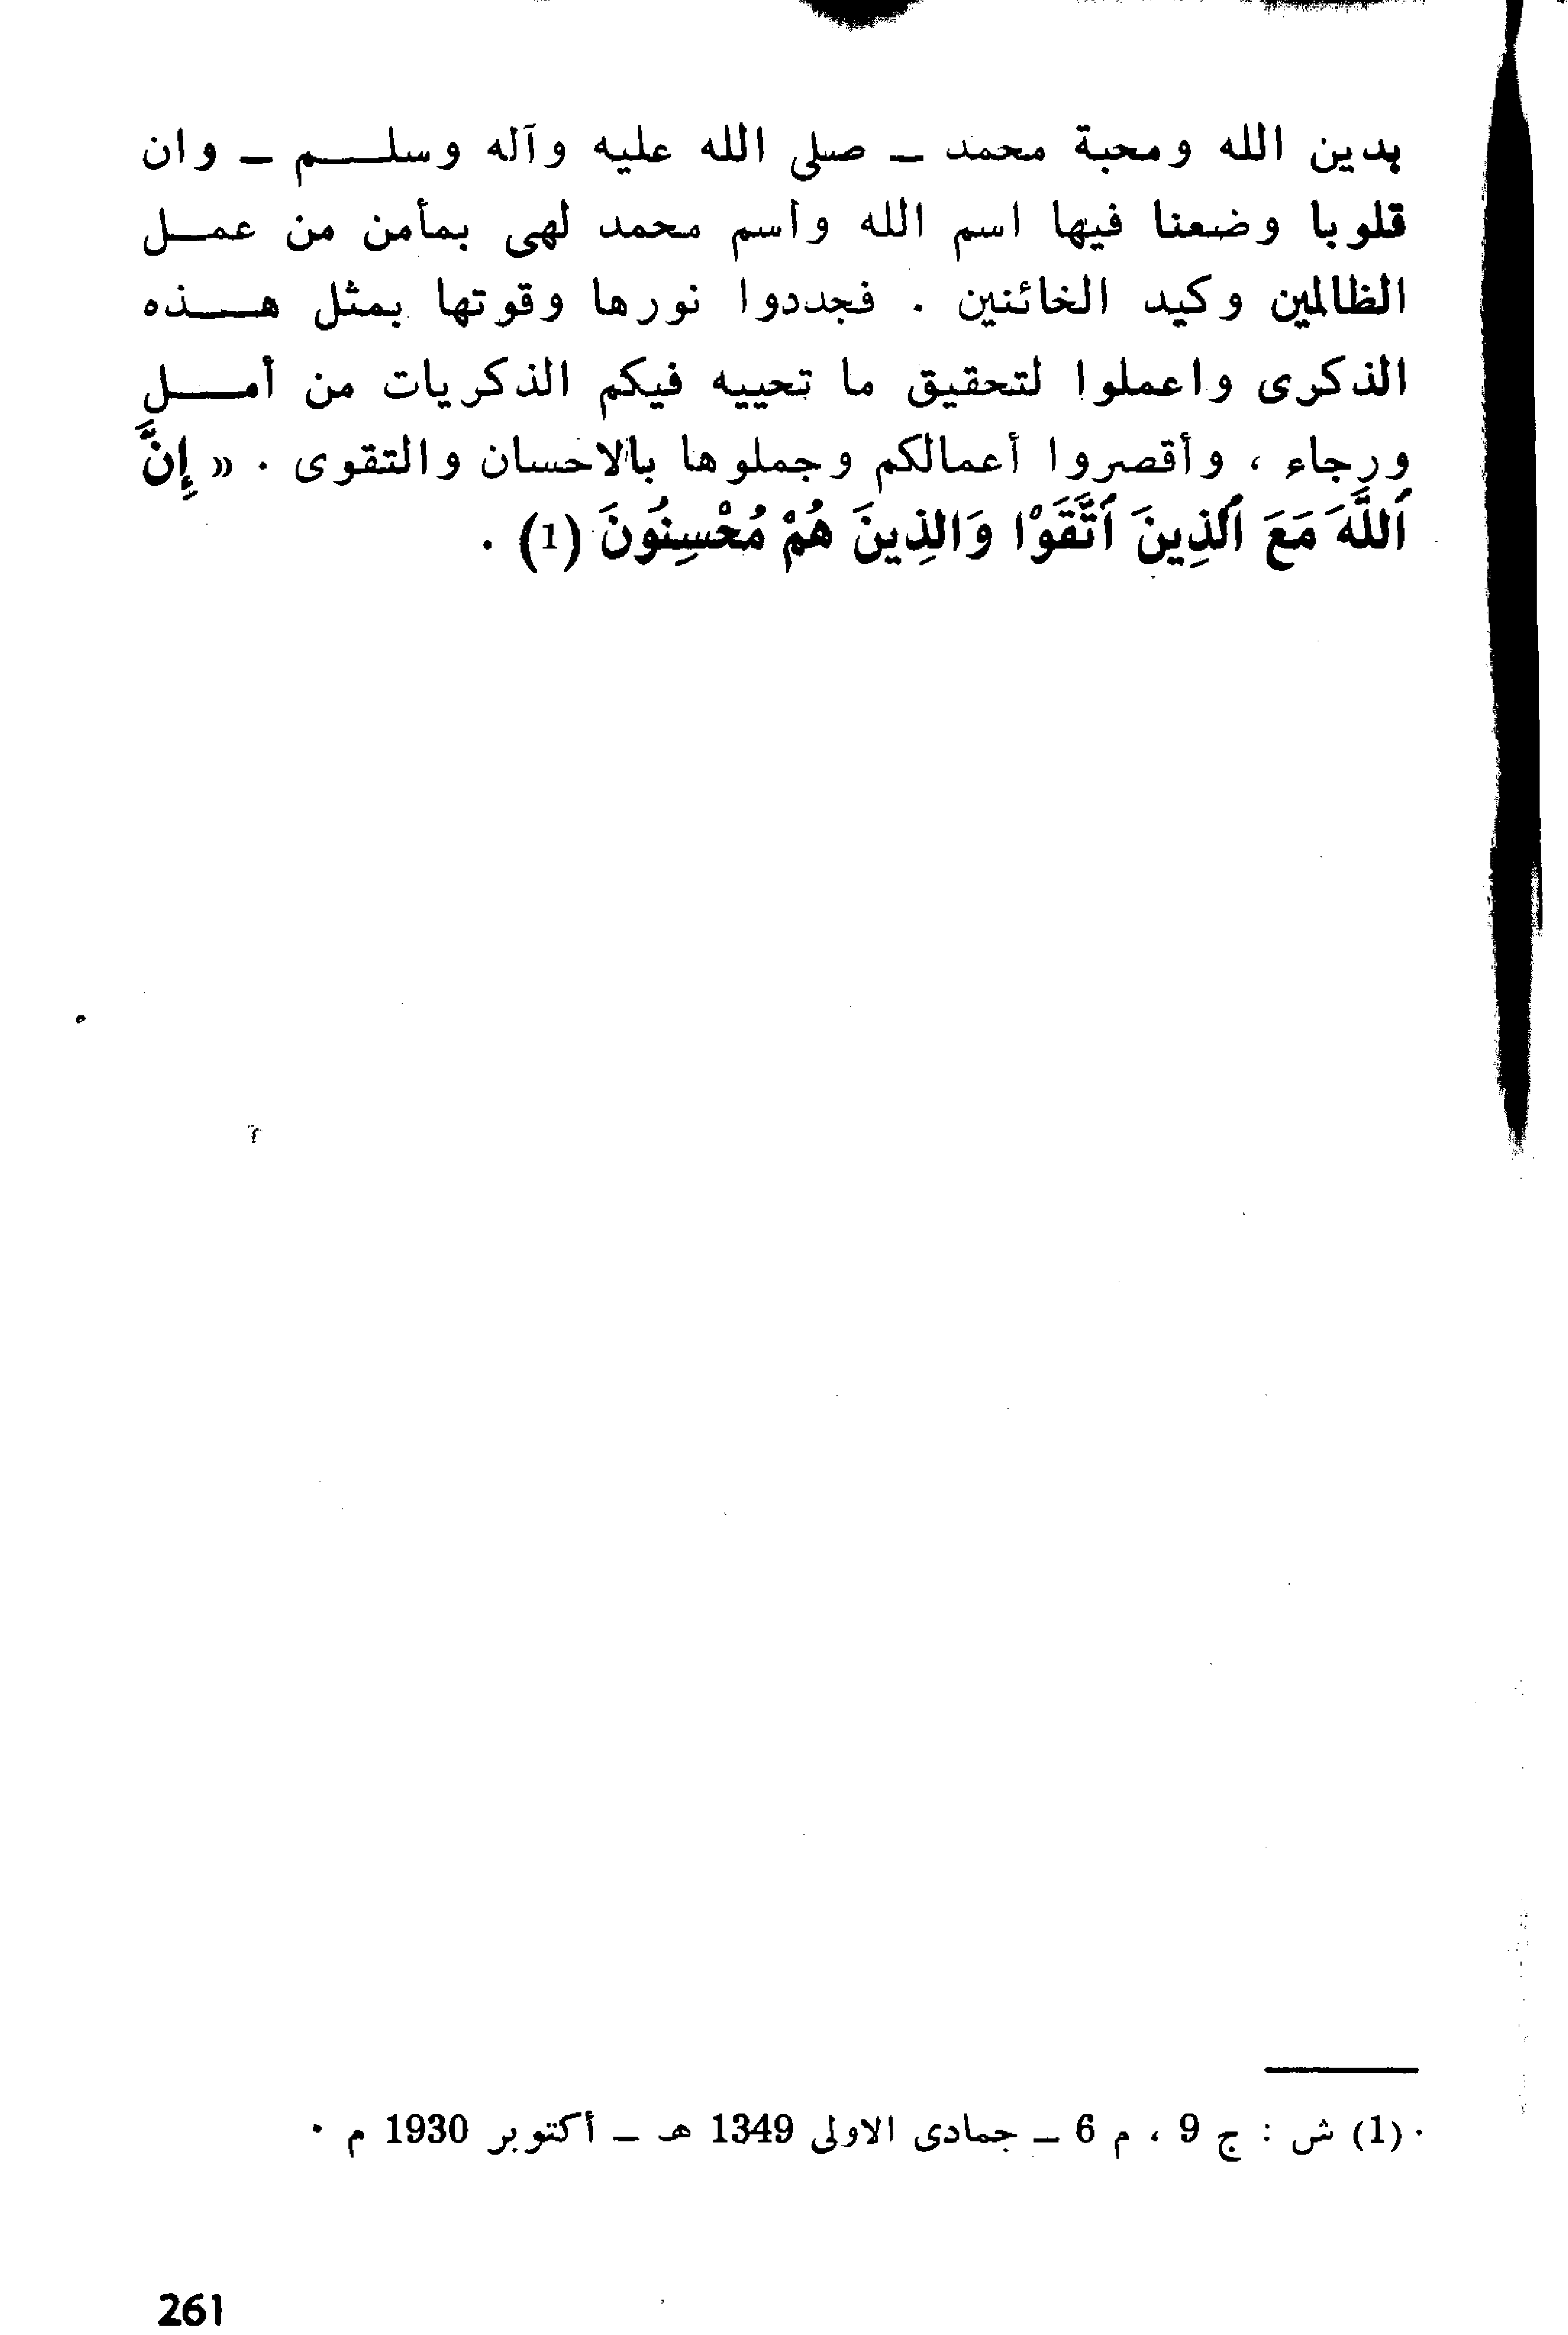 بدين الله ومحبة محمد ــ صلى الله عليه وآله وسلم ــ وان
قلوبا وضعنا فيها اسم الله واسم محمد لهى بمأمن من عمل
الظالمين وكيد الخائنين . فجددوا نورها وقوتها بمثل هذه
الذكرى واعملوا لتحقيق ما تحييه فيكم الذكريات من أمل
ورجاء ، وأقصروا أعمالكم وجملوها بالاحسان والتقوى . « إِنَّ
اَللَّهَ مَعَ اَلذِينَ اَتَّقَوْا وَالذِينَ هُمْ مُحْسِنُونَ (1) .
(1) ش : ج 9 ، م 6 ــ جمادى الاولى 1349 هـ ــ أكتوبر 1930 م .
261